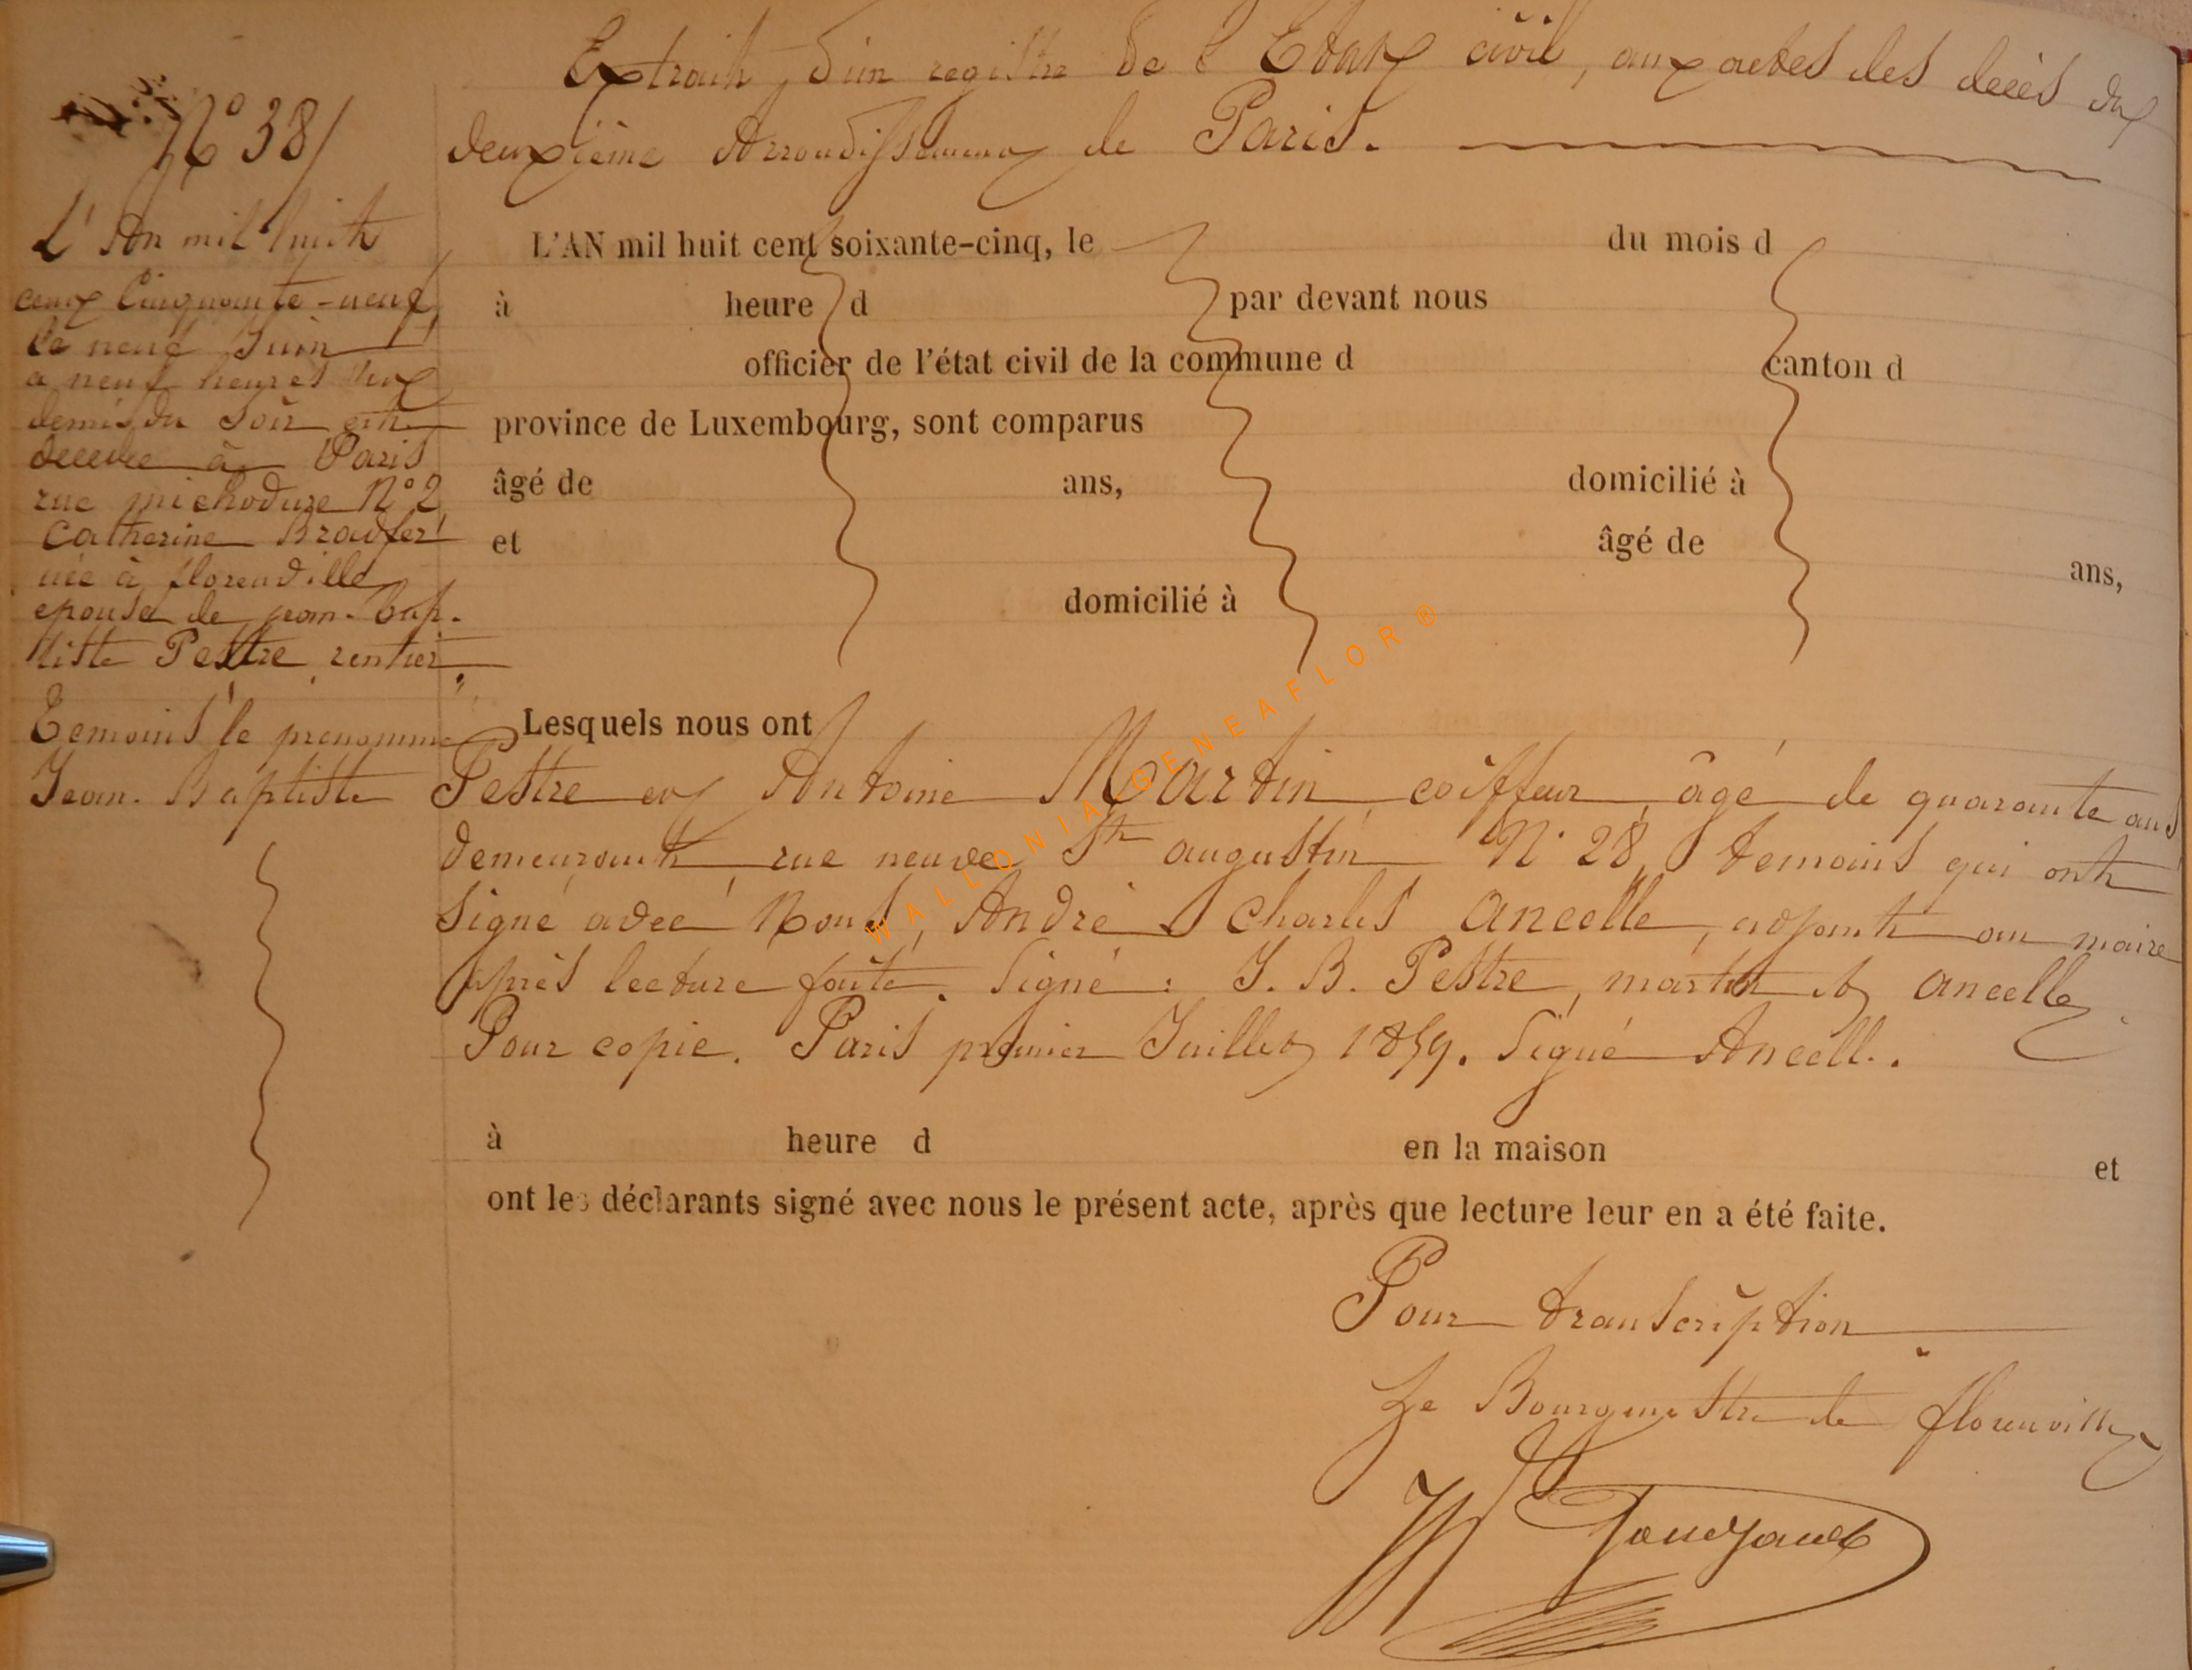 Extrait d'un registre de l'Etat civil, aux actes des decès du
deuxième Arrondissement de Paris.
N° 38
L'An mil huit
cent Cinquante-neuf
le neuf Juin
a neuf heures et
demis du soir est
décédée à Paris
rue michodure N° 2
Catherine Bradfer
née à florenville
epouse de jean-bap-
tiste Pestre rentier.
Temoins le prenommé
Jean-Baptiste
L'AN mil huit cent soixante-cinq, le du mois d
à heure d par devant nous
officier de l'état civil de la commune d canton d
province de Luxembourg, sont comparus
âgé de ans, domicilié à
et âgé de ans,
domicilié à
Lesquels nous ont
Pestre et Antoine Martin coiffeur, âgé de quarante ans
demeurant rue neuve St augustin N° 28, temoins qui ont
signé avec Nous, André Charles Ancelle, adjoint au maire
après lecture faite. Signé: J. B. Pestre, martin et Ancelle
Pour copie. Paris premier Juillet 1859. Signé Ancelle.
à heure d en la maison et
ont les déclarants signé avec nous le présent acte, après que lecture leur en a été faite.
Pour transcription
Le Bourgmestre de florenville
WALLONIA GENEAFLOR ®